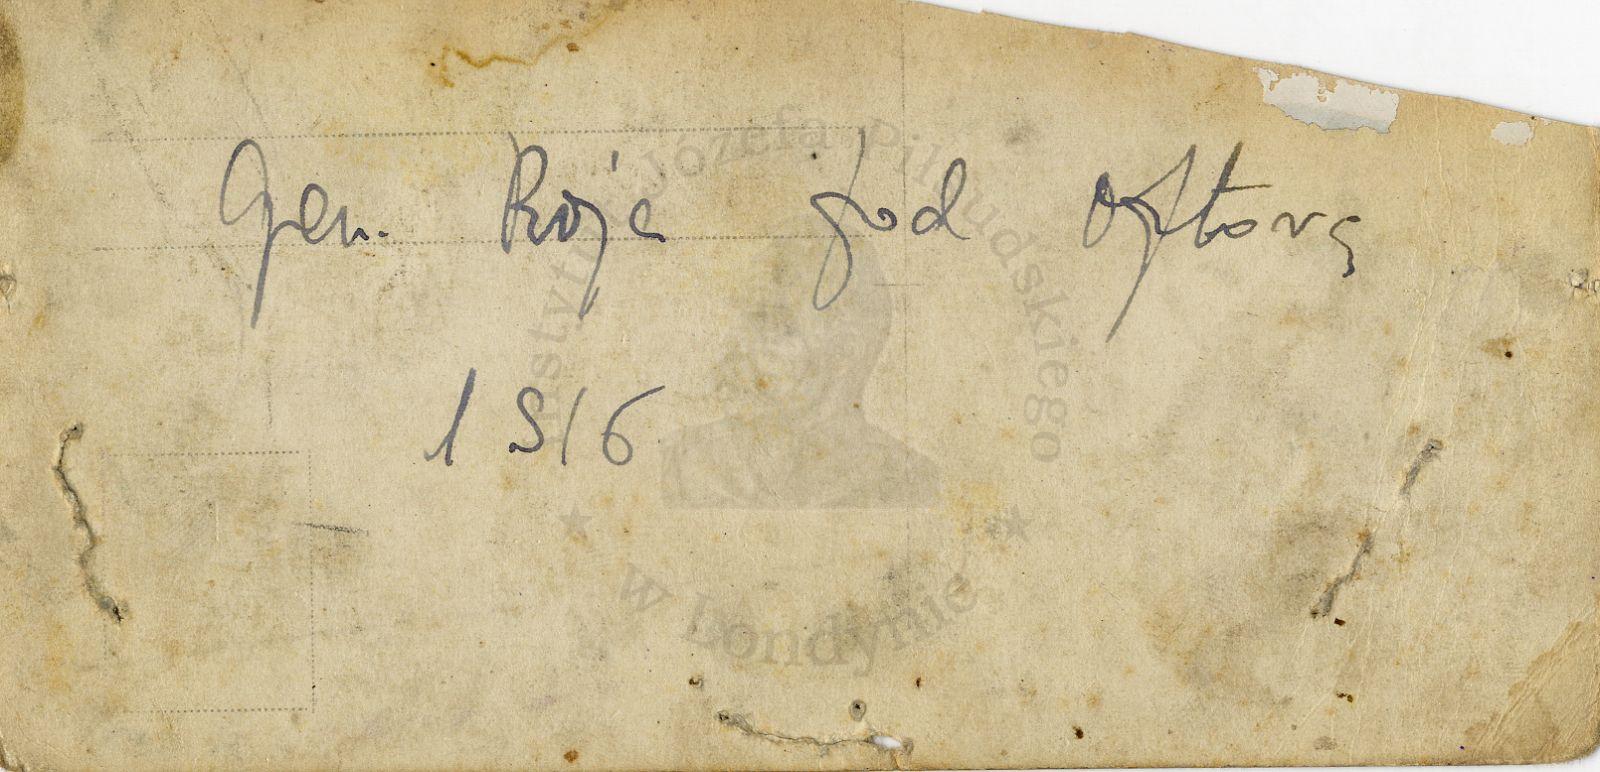 Gen. Roja pod Optovą
1916
Instytut Józefa Piłsudskiego
w Londynie